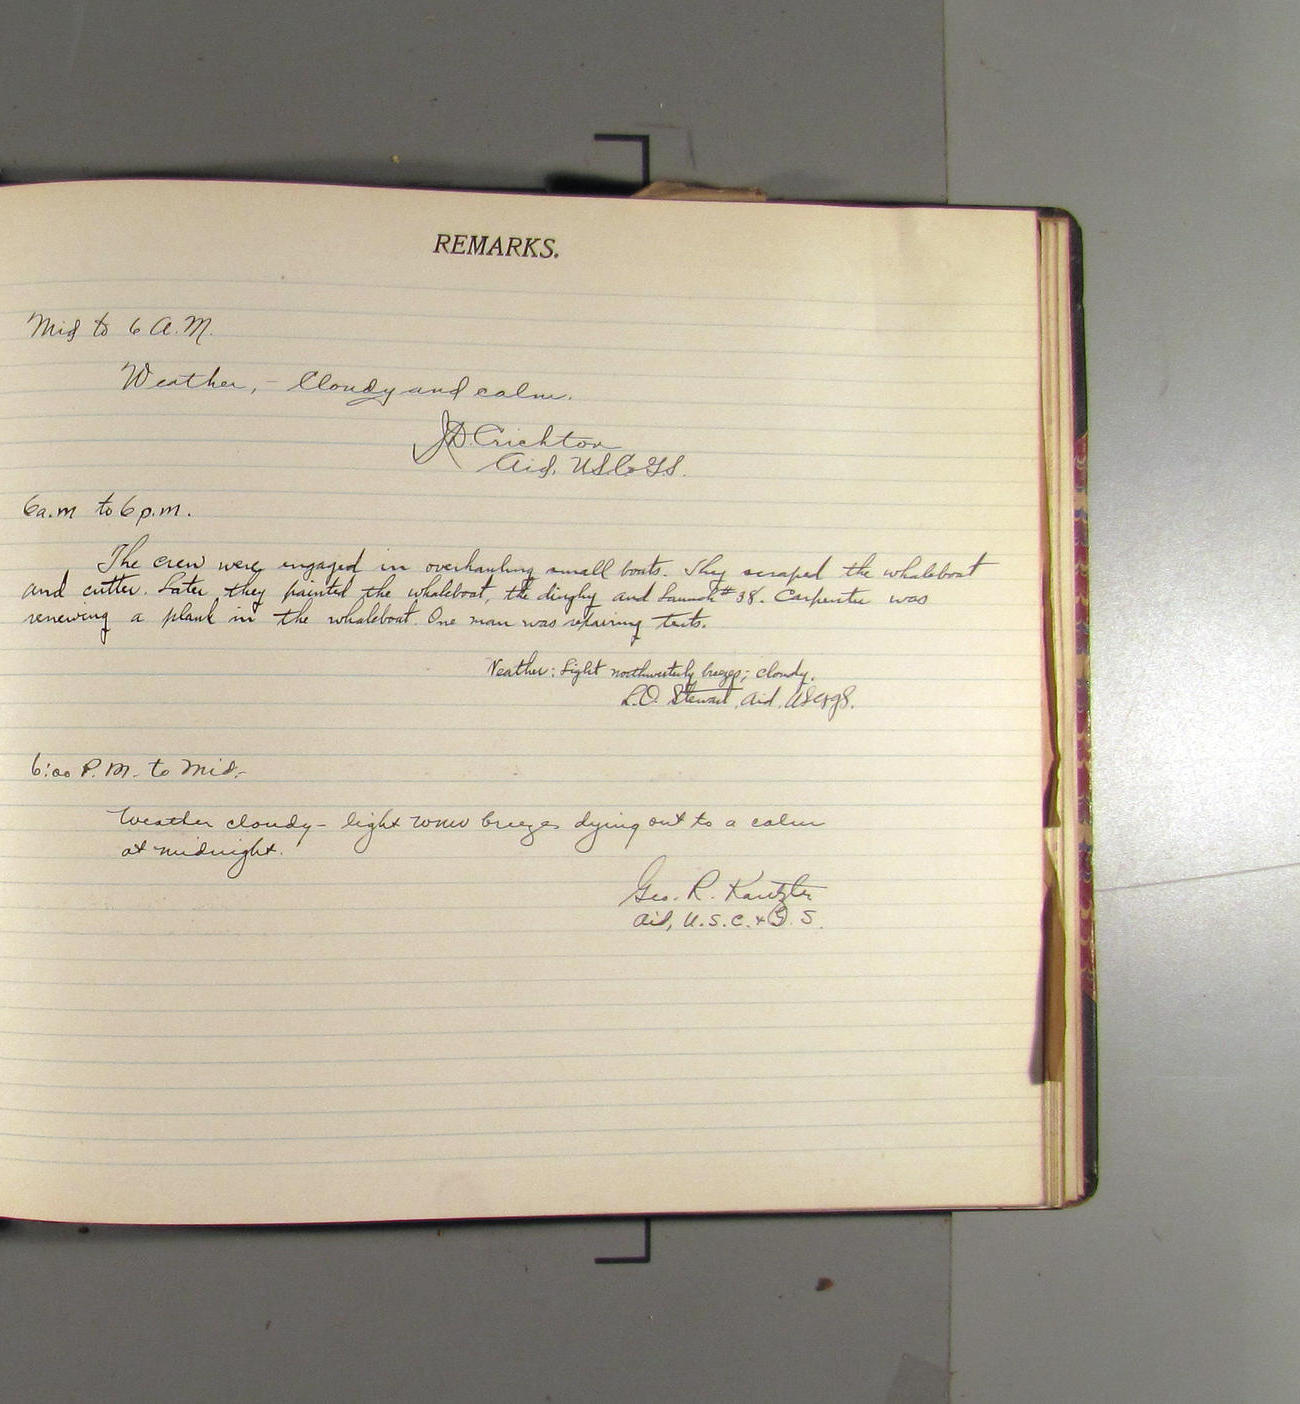 REMARKS.
Mid to 6 A.M.
Weather, - Cloudy and calm.
JD. Crichton
Aid, USC&GS.
6a.m to 6p.m.
The crew were engaged in overhauling small boats. They scraped the whaleboat
and cutter. Later they painted the whaleboat, the dinghy and Launch #38. Carpenter was
renewing a plank in the whaleboat. One man was repairing tents.
Weather: Light northwesterly breezes; cloudy.
L.O. Stewart, Aid, USC&GS.
6:00 P.M. to Mid.-
Weather cloudy - light WNW breezes dying out to a calm
at midnight.
Geo. R.
Aid, U.S.C.&G.S.